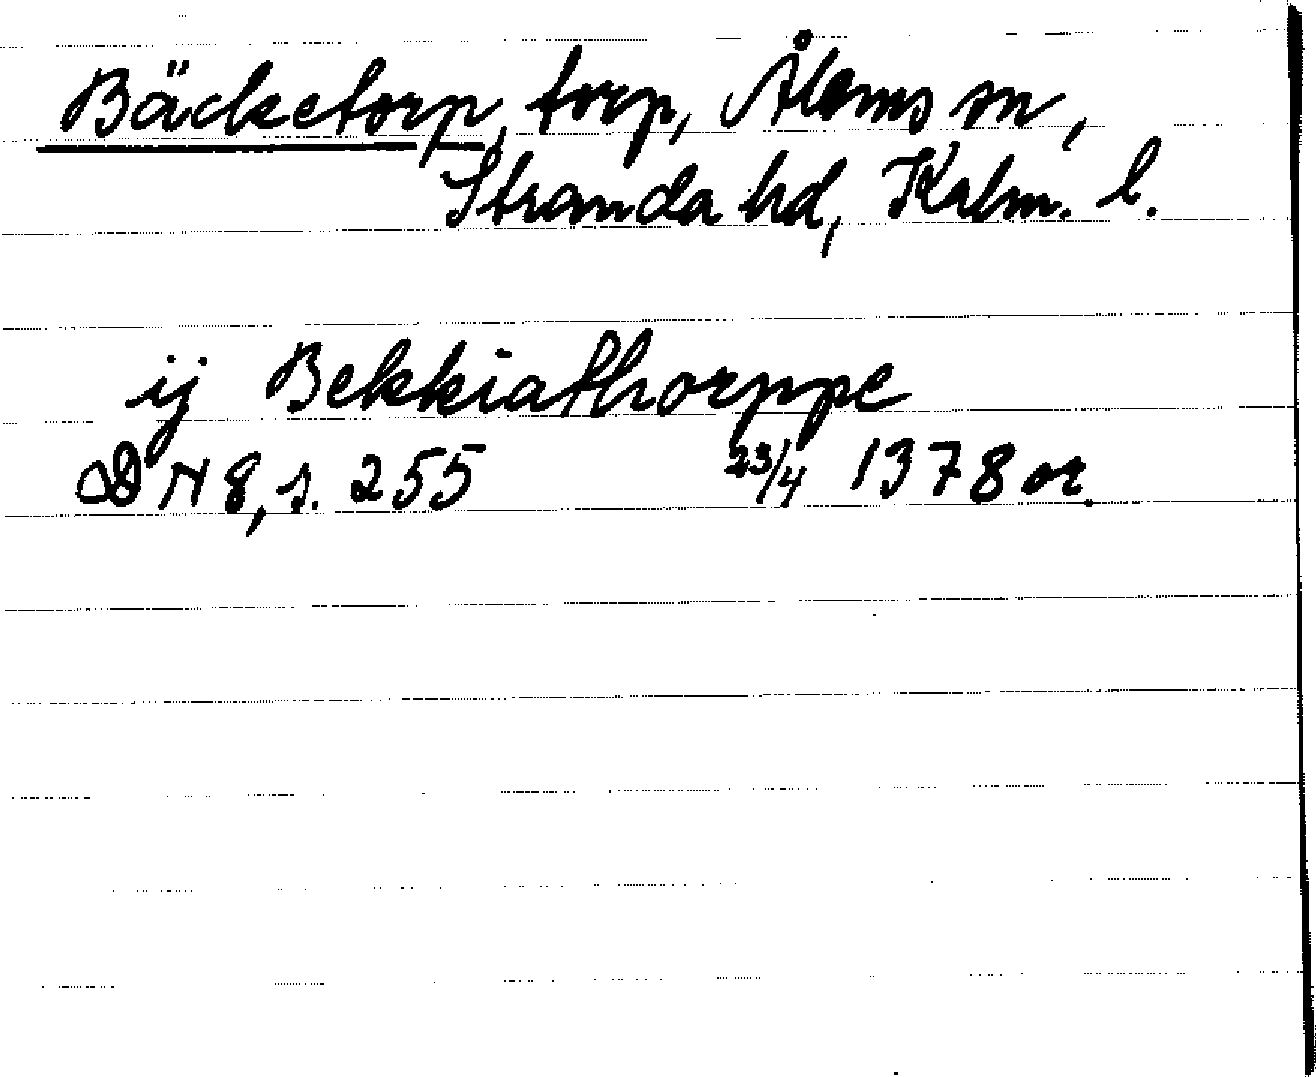 Bäcketorp, torp, Ålems sn,
Stranda hd, Kalm. l.
ij Bekkiathorppe
DN 8, s. 255 23/4 1378 or.